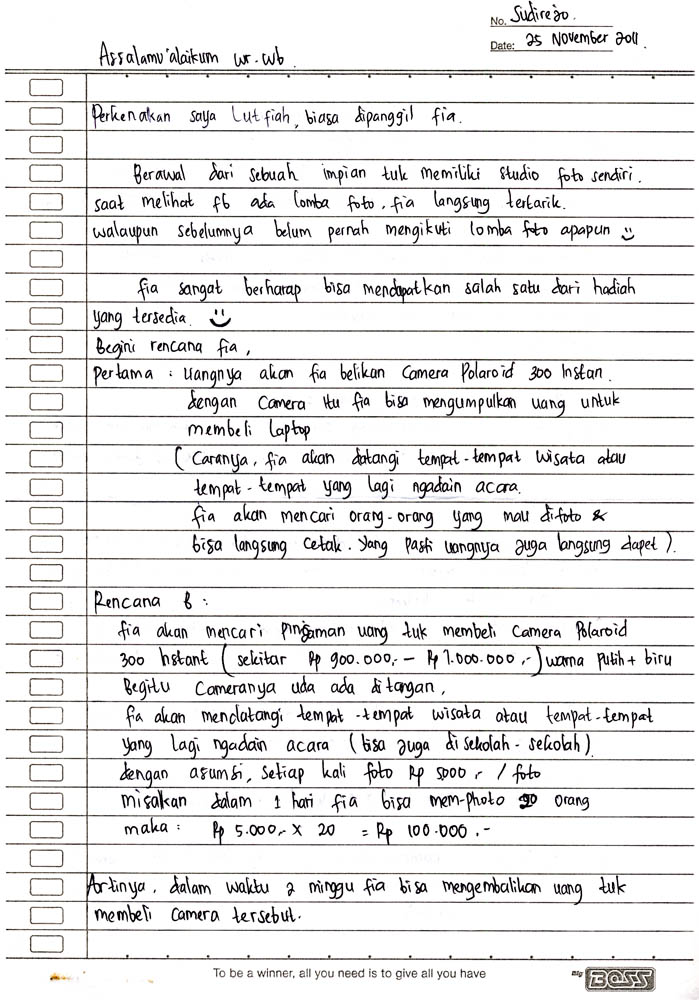 No. Sudirejo.
Date: 25 November 2011.
Assalamu'alaikum wr.wb.
Perkenankan saya Lutfiah, biasa dipanggil fia.
Berawal dari sebuah impian tuk memiliki studio foto sendiri.
saat melihat fb ada lomba foto, fia langsung tertarik.
walaupun sebelumnya belum pernah mengikuti lomba foto apapun
fia sangat berharap bisa mendapatkan salah satu dari hadiah
yang tersedia.
Begini rencana fia,
Pertama : uangnya akan fia belikan Camera Polaroid 300 Instan.
dengan camera itu fia bisa mengumpulkan uang untuk
membeli laptop
( Caranya, fia akan datangi tempat-tempat wisata atau
tempat-tempat yang lagi ngadain acara.
fia akan mencari orang-orang yang mau difoto &
bisa langsung cetak. Yang pasti uangnya juga langsung dapet ).
Rencana B :
fia akan mencari pinjaman uang tuk membeli Camera Polaroid
300 Instant ( sekitar Rp 900.000,- – Rp 1.000.000,- ) warna putih + biru
Begitu Cameranya uda ada ditangan,
fia akan mendatangi tempat-tempat wisata atau tempat-tempat
yang lagi ngadain acara (bisa juga di sekolah-sekolah)
dengan asumsi, setiap kali foto Rp 5000,- / foto
misalkan dalam 1 hari fia bisa mem-photo 20 orang
maka : Rp 5.000,- x 20 = Rp 100.000,-
Artinya, dalam waktu 2 minggu fia bisa mengembalikan uang tuk
membeli camera tersebut.
To be a winner, all you need is to give all you have
Big B@SS